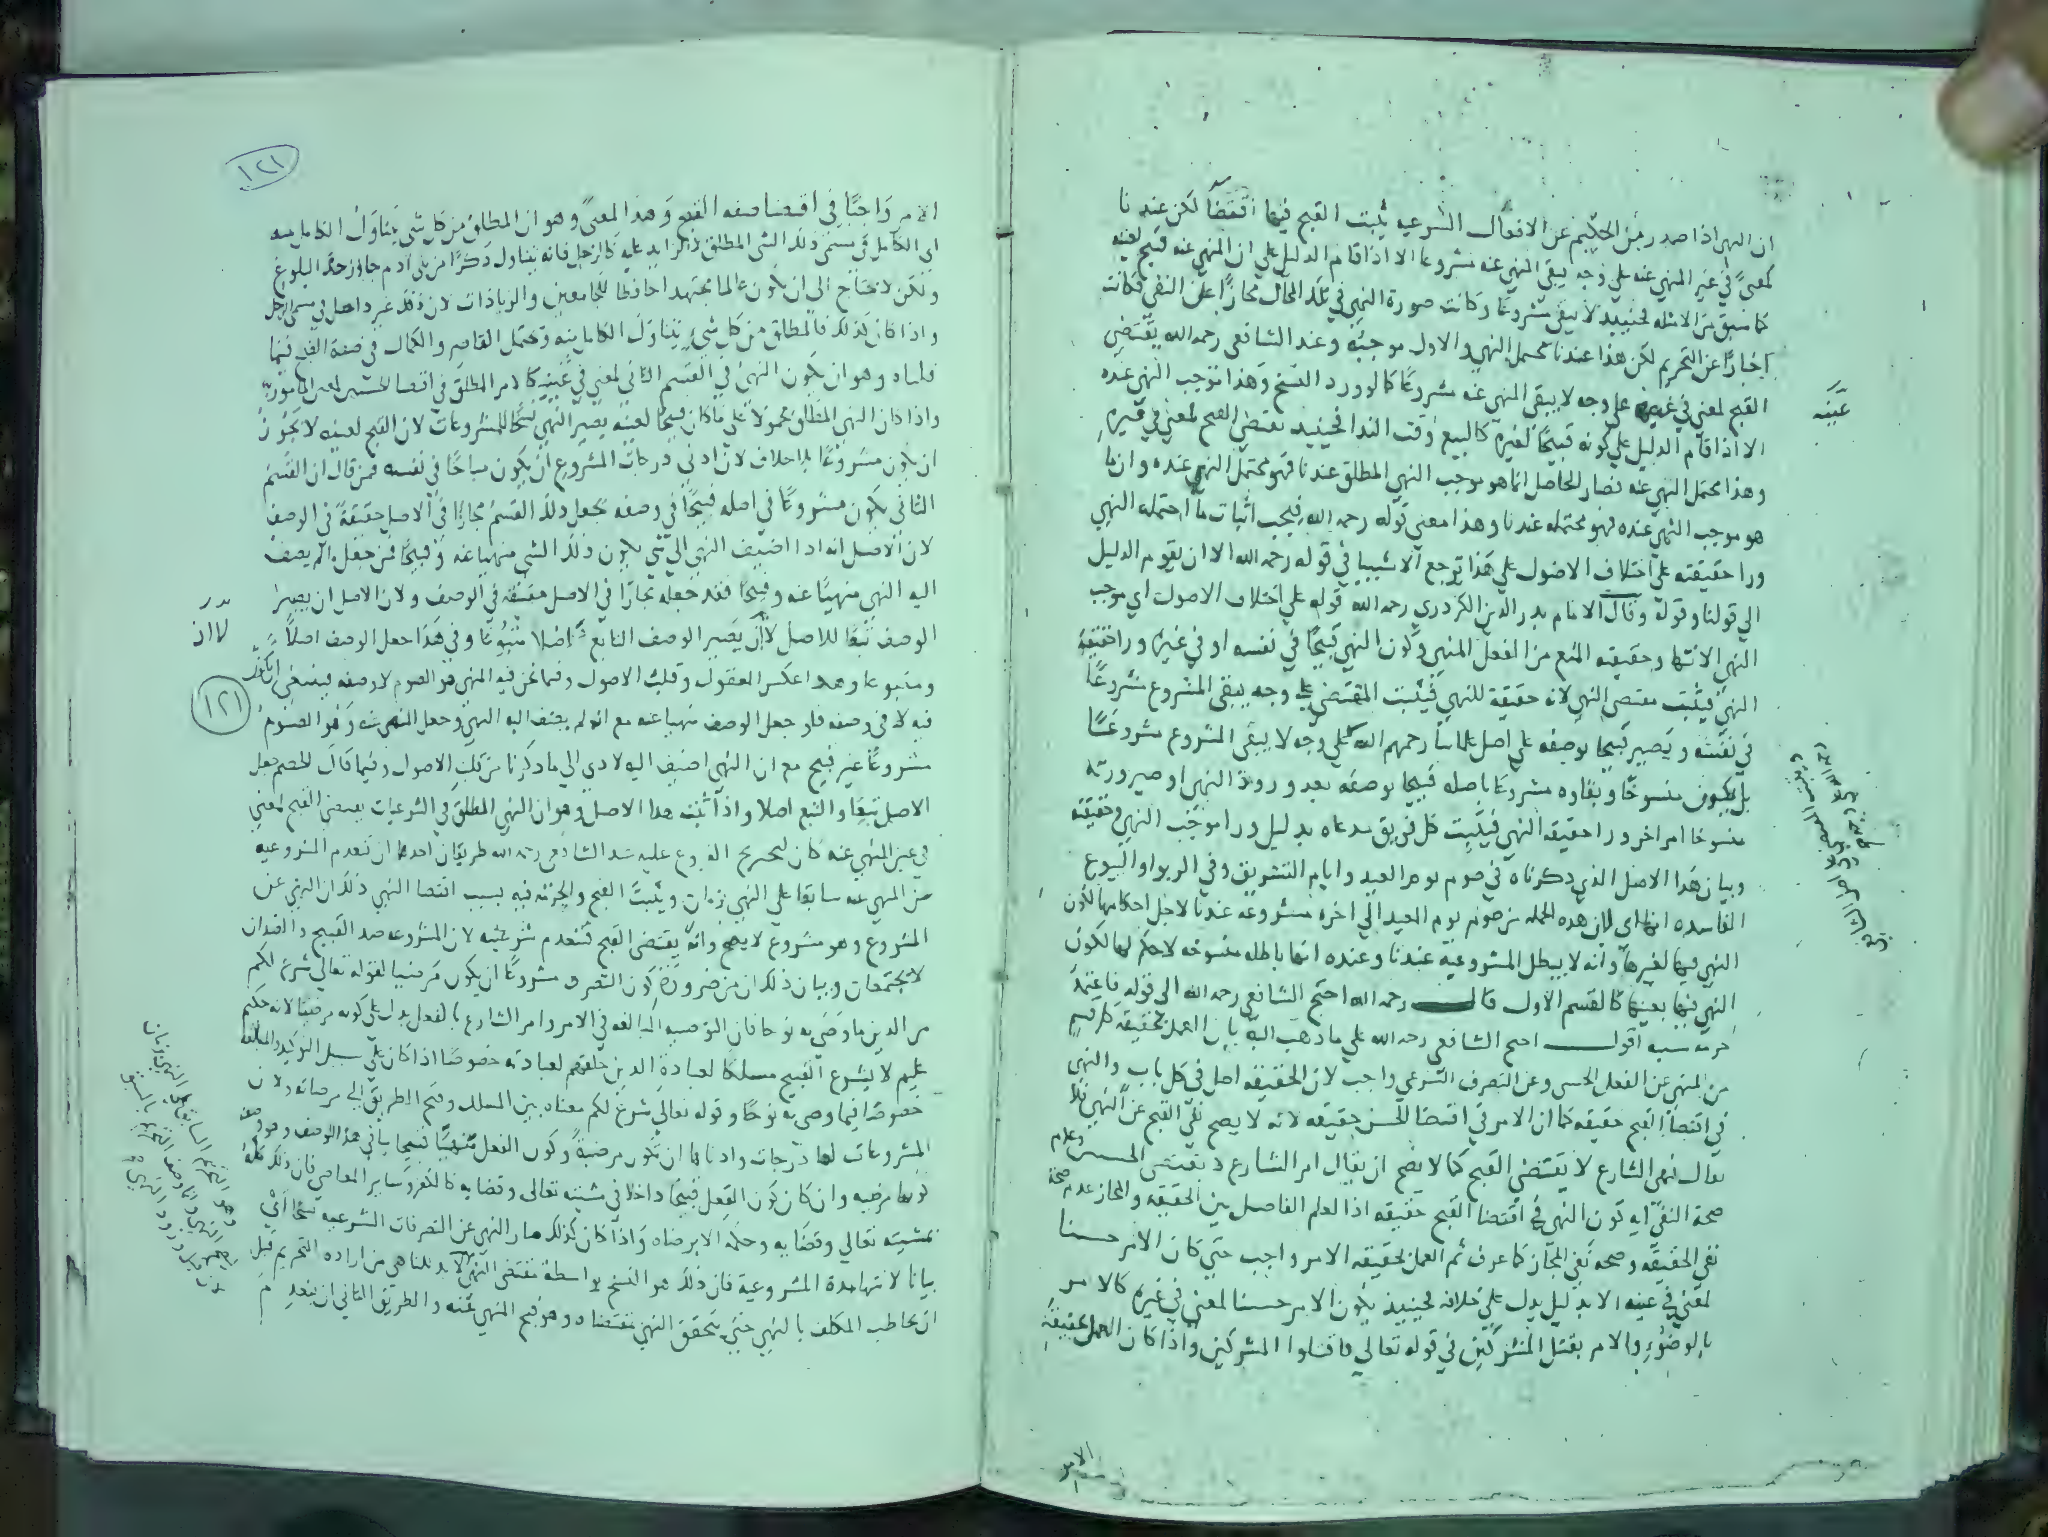 ان النهي اذا صدر من الحكيم عن الافعال الشرعيه يثبت القبح فيما اقتضا لكن عندنا
لمعنى في غير المنهي عنه على وجه يبقى المنهي عنه مشروعا الا اذا قام الدليل على ان المنهي عنه قبيح لعينه
كما سبق من الامثله فحينئذ لا يبقى مشروعا وكانت صورة النهي في تلك المحال مجازا عن النفي فكانت
اخبارا عن التحريم لكن هذا عندنا محتمل النهي والاول موجبه وعند الشافعي رحمه الله يقتضي
القبح لمعنى في على وجه لا يبقى المنهي عنه مشروعا كما لو ورد النسخ وهذا موجب النهي عنده
عينه
الا اذا قام الدليل على كونه قبيحا لغيره كالبيع وقت الندا فحينئذ يقتضي القبح لمعنى في غيره
وهذا محتمل النهي عنه فصار الحاصل ان ما هو موجب النهي المطلق عندنا فهو محتمل النهي عنده وان ما
هو موجب النهي عنده فهو محتمله عندنا وهذا معنى قوله رحمه الله فيجب اثبات ما احتمله النهي
ورا حقيقته على اختلاف الاصول على هذا ترجع الاشيا في قوله رحمه الله الا ان يقوم الدليل
الى قولنا وقوله وقال الامام بدر الدين الكردري رحمه الله قوله على اختلاف الاصول اي موجب
النهي الانتها وحقيقته المنع من الفعل المنهي وكون النهي قبيحا في نفسه او في غيره ورا حقيقة
النهي فيثبت مقتضى النهي لانه حقيقة للنهي فيثبت المقتضى على وجه يبقى المشروع مشروعا
في نفسه ويصير قبيحا بوصفه على اصل علمائنا رحمهم الله على وجه لا يبقى المشروع مشروعا
بل يكون منسوخا وبقاوه مشروعا باصله قبيحا بوصفه بعد ورود النهي او صيرورته
منسوخا امر اخر ورا حقيقة النهي فيثبت كل فريق مدعاه بدليل ورا موجب النهي وحقيقته
وبيان هذا الاصل الذي ذكرناه في صوم يوم العيد وايام التشريق وفي الربوا والبيوع
الفاسده انها اي لان هذه الجمله من صوم يوم العيد الى اخره مشروعه عندنا لاجل احكامها لكون
النهي فيها لغيرها وانه لا يبطل المشروعية عندنا وعنده انها باطله منسوخه لا حكم لها لكون
النهي فيها بعينها كالقسم الاول قال رحمه الله احتج الشافعي رحمه الله الى قوله فاعتمد
حرمه سببه اقول احتج الشافعي رحمه الله على ما ذهب اليه بان العمل بحقيقة كل قسم
من المنهي عن الفعل الحسي وعن التصرف الشرعي واجب لان الحقيقه اصل في كل باب والنهي
في اقتضا القبح حقيقه كما ان الامر في اقتضا الحسن حقيقه لانه لا يصح نفي القبح عن النهي فلا
يقال نهي الشارع لا يقتضي القبح كما لا يصح ان يقال امر الشارع لا يقتضي الحسن وعدم
صحة النفي اية كون النهي في اقتضا القبح حقيقه اذا العلم الفاصل بين الحقيقه والمجاز عدم صحة
نفي الحقيقه وصحه نفي المجاز كما عرف ثم العمل بحقيقه الامر واجب حتى كان الامر حسنا
لمعنى في عينه الا بدليل يدل على خلافه فحينئذ يكون الامر حسنا لمعنى في غيره كالامر
بالوضوء والامر بقتل المشركين في قوله تعالى فاقتلوا المشركين واذا كان العمل بحقيقة
الامر
١٢١
الامر واجبا في اقتضا صفه القبح وهذا المعنى وهو ان المطلق من كل شي يتناول الكامل منه
اي الكامل في مسمى ذلك الشي المطلق لا الزايد عليه كالرجل فانه يتناول ذكرا من بني ادم جاوز حد البلوغ
ولكن لا يحتاج الى ان يكون عالما مجتهدا حافظا للجامعين والزيادات لان ذلك غير داخل في مسمى الرجل
واذا كان كذلك فالمطلق من كل شي يتناول الكامل منه ويحتمل القاصر والكمال في صفة القبح فيما
قلناه وهو ان يكون النهي في القسم الثاني لمعنى في عينه كالامر المطلق في اقتضا الحسن لمعنى المامور به
واذا كان النهي المطلق محمولا على ما كان قبيحا لعينه يصير النهي نسخا للمشروعات لان القبح لعينه لا يجوز
ان يكون مشروعا بلا خلاف لان ادنى درجات المشروع ان يكون مباحا في نفسه فمن قال ان القسم
الثاني يكون مشروعا في اصله قبيحا في وصفه يجعل ذلك القسم مجازا في الاصل حقيقة في الوصف
لان الاصل انه اذا اضيف النهي الى شي يكون ذلك الشي منهيا عنه وقبيحا فمن جعل ما لم يضف
اليه النهي منهيا عنه وقبيحا فقد جعله مجازا في الاصل حقيقة في الوصف ولان الاصل ان يصير
الوصف تبعا للاصل لا ان يصير الوصف التابع اصلا متبوعا وفي هذا جعل الوصف اصلا
لا ان
ومتبوعا وهذا عكس المعقول وقلب الاصول وفيما نحن فيه المنهي هو الصوم لا وصفه فينبغي ان يكون
١٢١
فيه لا في وصفه فلو جعل الوصف منهيا عنه مع انه لم يضف اليه النهي وجعل وهو الصوم
مشروعا غير قبيح مع ان النهي اضيف اليه لادى الى ما ذكرنا من قلب الاصول وفيما قال الخصم يجعل
الاصل تبعا والتبع اصلا واذا ثبت هذا الاصل وهو ان النهي المطلق في الشرعيات يقتضي القبح لمعنى
في عين المنهي عنه كان لتخريج الفروع عليه عند الشافعي رحمه الله طريقان احدهما ان تنعدم المشروعيه
من المنهي عنه سابقا على النهي بزمان ويثبت القبح والحرمه فيه بسبب اقتضا النهي ذلك ان النهي عن
المشروع وهو مشروع لا يصح وانه يقتضي القبح فتنعدم شرعيته لان المشروعه ضد القبيح والضدان
لا يجتمعان وبيان ذلك ان من ضرورة كون التصرف مشروعا ان يكون مرضيا لقوله تعالى شرع لكم
من الدين ما وصى به نوحا فان التوصيه المبالغه في الامر وامر الشارع بالفعل يدل على كونه مرضيا لانه حكيم
عليم لا يشرع القبيح مسلكا لعبادة الذين خلقهم لعبادته خصوصا اذا كان على سبيل التوكيد والمبالغه
خصوصا فيما وصى به نوحا وقوله تعالى شرع لكم معناه بين المسلك وفتح الطريق الى مرضاته ولان
المشروعات لها درجات وادناها ان تكون مرضية وكون الفعل منهيا قبيحا ينافي هذا الوصف وهو وصف
كونها مرضيه وان كان كون الفعل قبيحا داخلا في مشيته تعالى وقضايه كالكفر وساير المعاصي فان ذلك كله
بمشيته تعالى وقضايه وحكمه لا برضاه واذا كان كذلك صار النهي عن التصرفات الشرعيه نسخا اي
بيانا لانتها مدة المشروعية فان ذلك هو النسخ بواسطة مقتضى النهي لابد للناهي من اراده التحريم قبل
ان يخاطب المكلف بالنهي حتى يتحقق النهي بمقتضاه وهو قبح المنهي عنه والطريق الثاني ان ينعدم